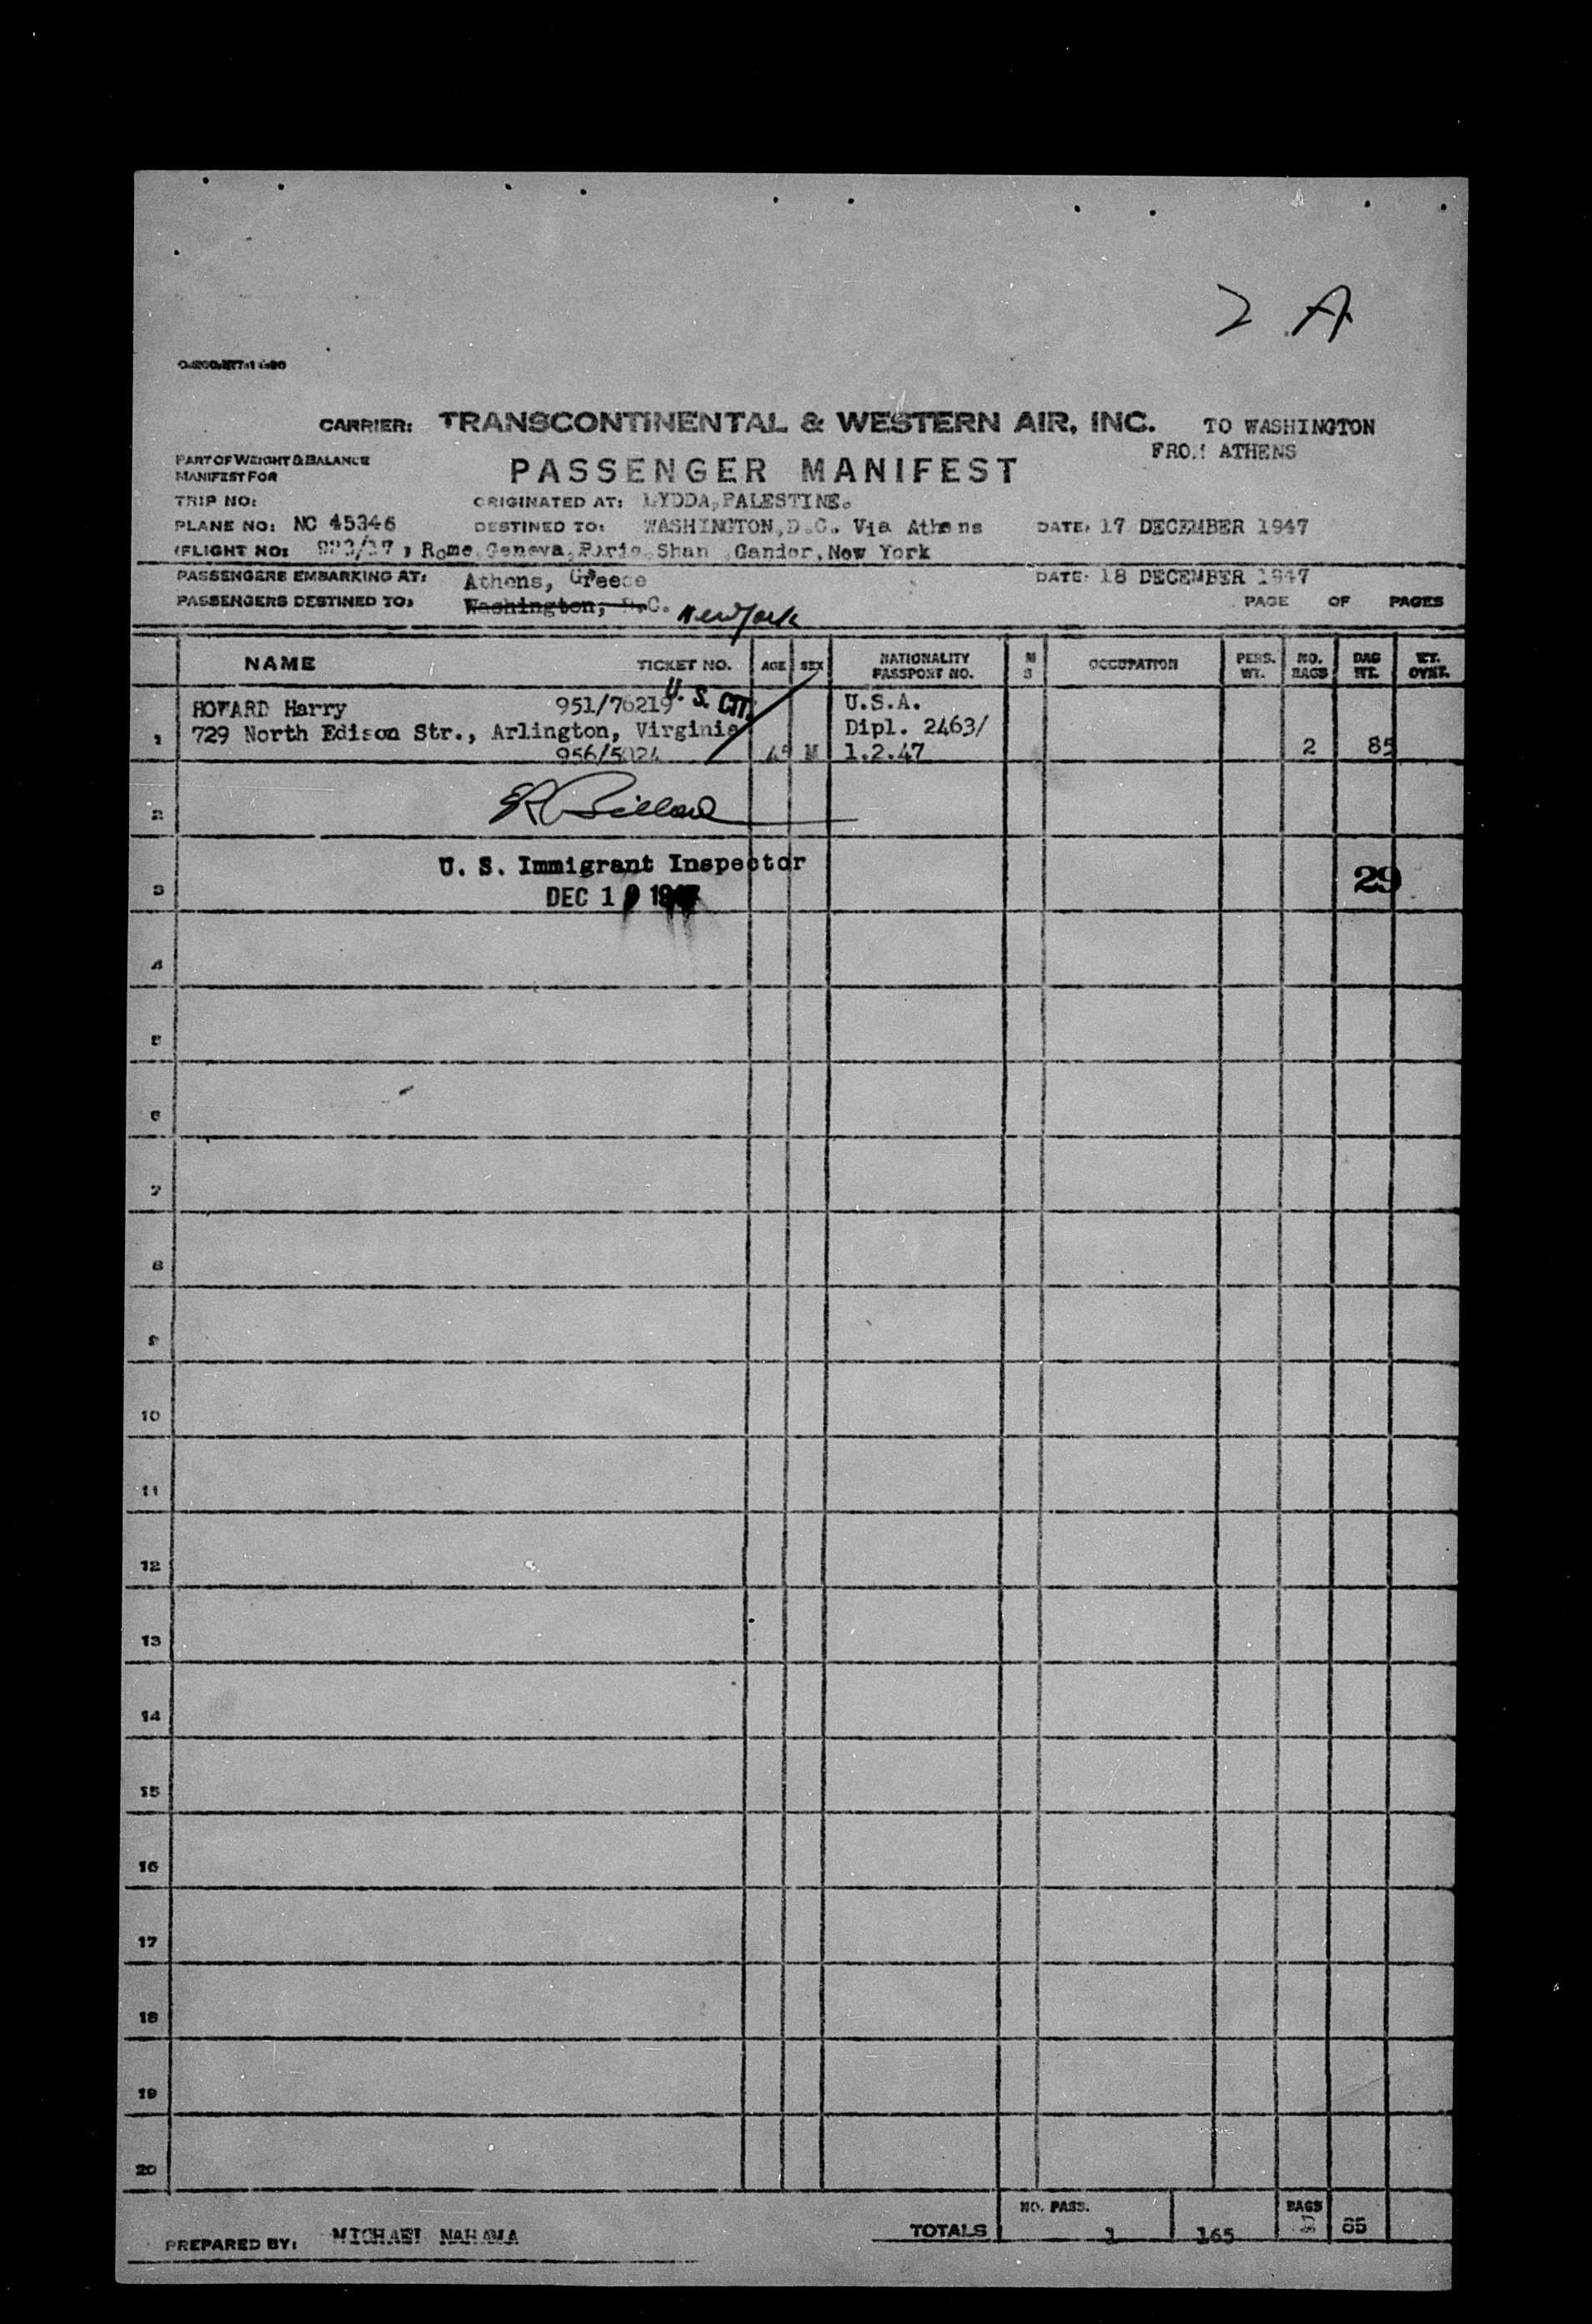 2 A
CARRIER: TRANSCONTINENTAL & WESTERN AIR, INC. TO WASHINGTON
FROM ATHENS
PART OF WEIGHT & BALANCE
MANIFEST FOR
PASSENGER MANIFEST
TRIP NO: ORIGINATED AT: LYDDA, PALESTINE.
PLANE NO: NC 45346 DESTINED TO: WASHINGTON, D.C. Via Athens DATE: 17 DECEMBER 1947
(FLIGHT NO: , Rome, Geneva, Paris, Shan , Gander, New York
PASSENGERS EMBARKING AT: Athens, Greece DATE: 18 DECEMBER 1947
PASSENGERS DESTINED TO: Washington, D.C. New York PAGE OF PAGES
NAME TICKET NO. AGE SEX NATIONALITY PASSPORT NO. M S OCCUPATION PERS. WT. NO. BAGS BAG WT. WT. OVRT.
HOWARD Harry 951/76219 U. S. CIT. U.S.A.
729 North Edison Str., Arlington, Virginia Dipl. 2463/
1 956/5024 45 M 1.2.47 2 85
2
U. S. Immigrant Inspector
3 DEC 19 1947 29
4
5
6
7
8
9
10
11
12
13
14
15
16
17
18
19
20
NO. PASS. BAGS
PREPARED BY: MICHAEL NAHAMA TOTALS 1 165 85